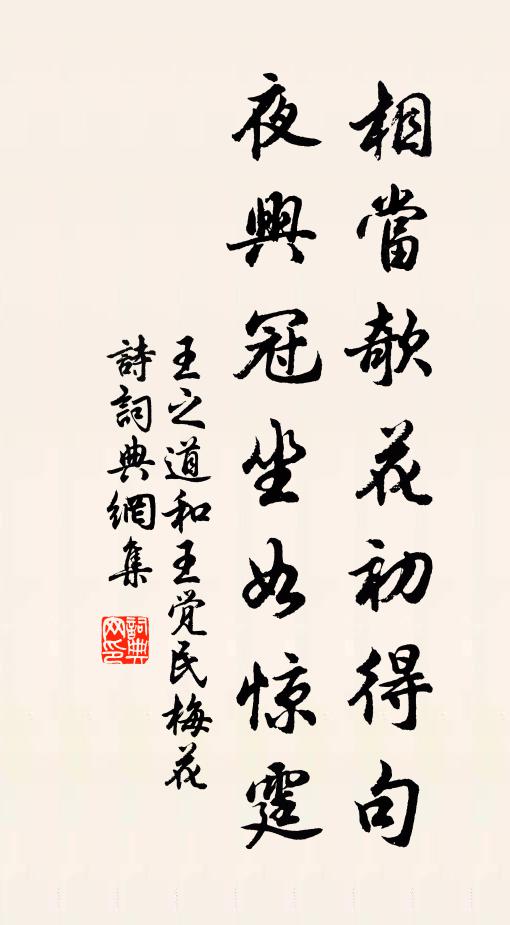 相當欹花初得句
夜興冠坐如惊霆
王之道和王觉民梅花
詩詞典網集
詞典
网印